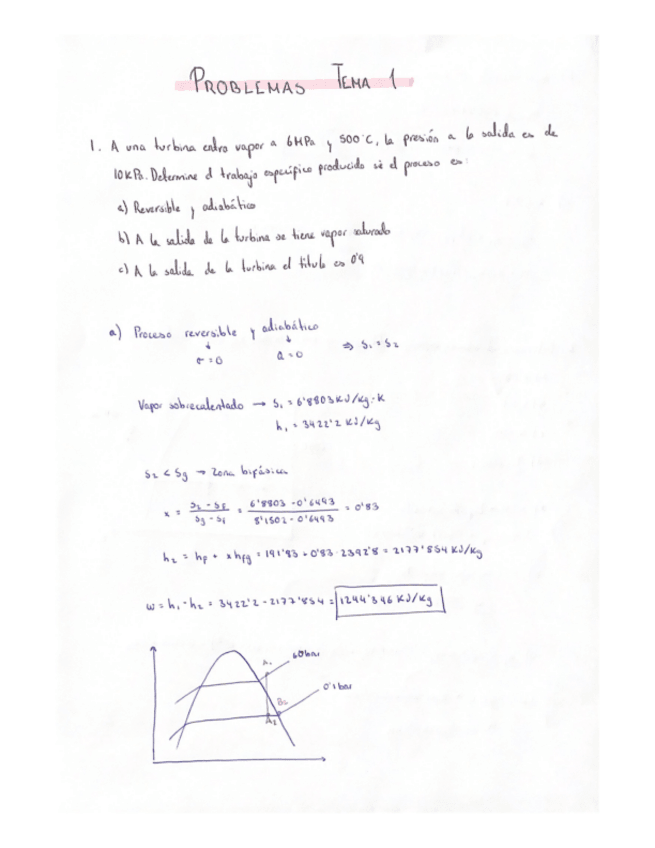 PROBLEMAS TEMA 1
1. A una turbina entra vapor a 6MPa y 500°C, la presión a la salida es de
10KPa. Determine el trabajo específico producido si el proceso es:
a) Reversible y adiabático
b) A la salida de la turbina se tiene vapor saturado
c) A la salida de la turbina el título es 0'9
a) Proceso reversible y adiabático
↓ ↓ ⇒ S₁ = S₂
σ = 0 Q = 0
Vapor sobrecalentado → S₁ = 6'8803 KJ/kg·K
h₁ = 3422'2 KJ/kg
S₂ < Sg → Zona bifásica
x = (S₂ - Sf)/(Sg - Sf) = (6'8803 - 0'6493)/(8'1502 - 0'6493) = 0'83
h₂ = hf + x hfg = 191'83 + 0'83 · 2392'8 = 2177'854 KJ/kg
w = h₁ - h₂ = 3422'2 - 2177'854 = 1244'346 KJ/kg
60bar
A₁
0'1 bar
B₂
A₂